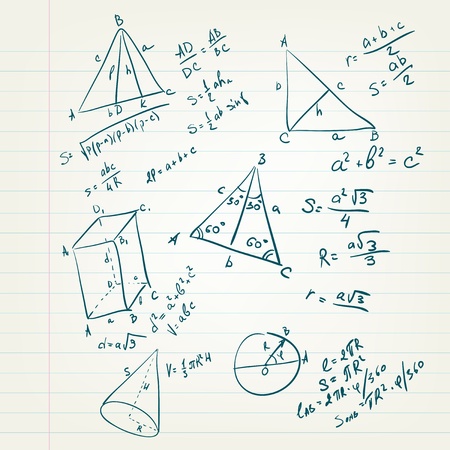 B
c
a
p
h
A
b D
K
C
AD/DC = AB/BC
S=1/2 ah
S=1/2 ab sin
S=√p(p-a)(p-b)(p-c)
S=abc/4R
2p=a+b+c
A
D
c
h
C
a
B
r=a+b+c/2
S=ab/2
a²+b²=c²
B
c
30°
30°
a
A
60°
60°
b
C
S=a²√3/4
R=a√3/3
r=a√3
D₁
C₁
A₁
B₁
d
D
C
a
A
a
B
d²=a²+b²+c²
V=abc
d=a√3
S
H
R
V=1/3πR²H
B
R
φ
A
O
ℓ=2πR
S=πR²
ℓAB=2πR·φ/360
SOAB=πR²·φ/360